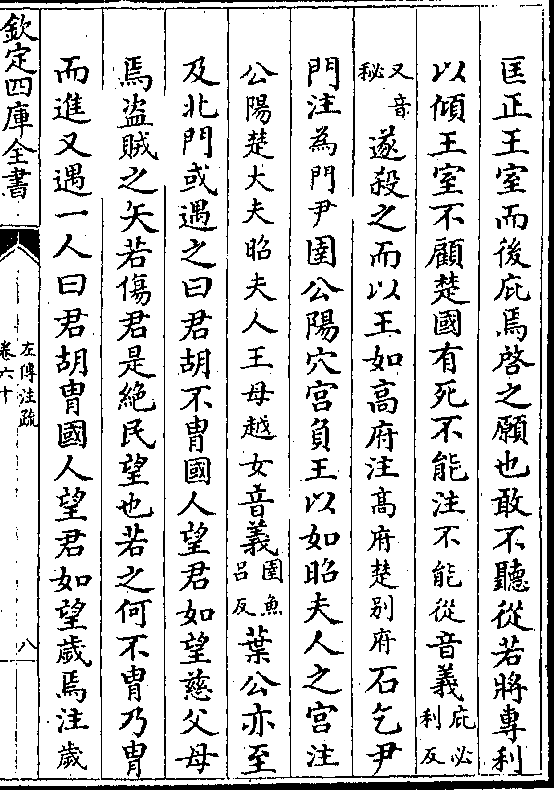 匡正王室而後庇焉啓之願也敢不聽從若將專利
以傾王室不顧楚國有死不能注不能從音義庇必利反
又音秘遂殺之而以王如高府注高府楚别府石乞尹
門注為門尹圉公陽穴宫負王以如昭夫人之宫注
公陽楚大夫昭夫人王母越女音義圉魚吕反葉公亦至
及北門或遇之曰君胡不胄國人望君如望慈父母
焉盗賊之矢若傷君是絶民望也若之何不胄乃胄
而進又遇一人曰君胡胄國人望君如望歲焉注歲
欽定四庫全書
左傳注疏
卷六十
八